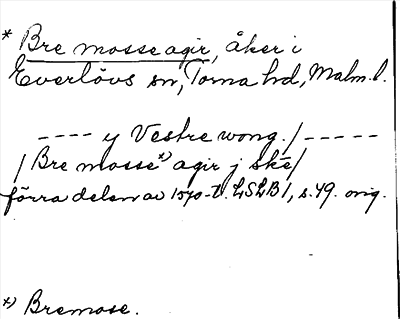 * Bre mosse agir, åker i
Everlövs sn, Torna hd, Malm. l.
---- y Vestre wong. / -----
/ Bre mosse x) agir j ské /
förra delen av 1570-t. LSLB1, s. 49. orig.
x) Bremose.